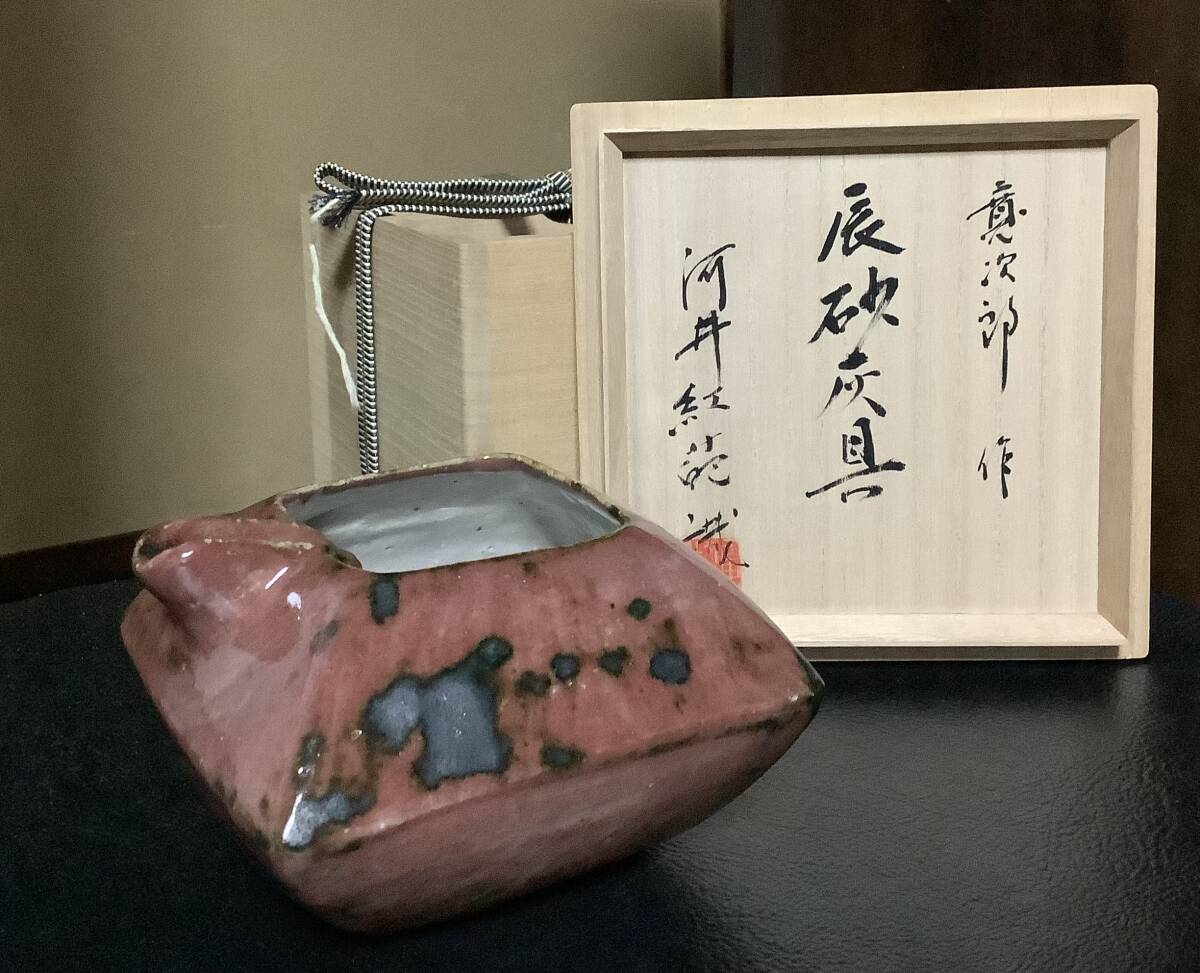 寛次郎 作
辰砂灰具
河井紅葩 識